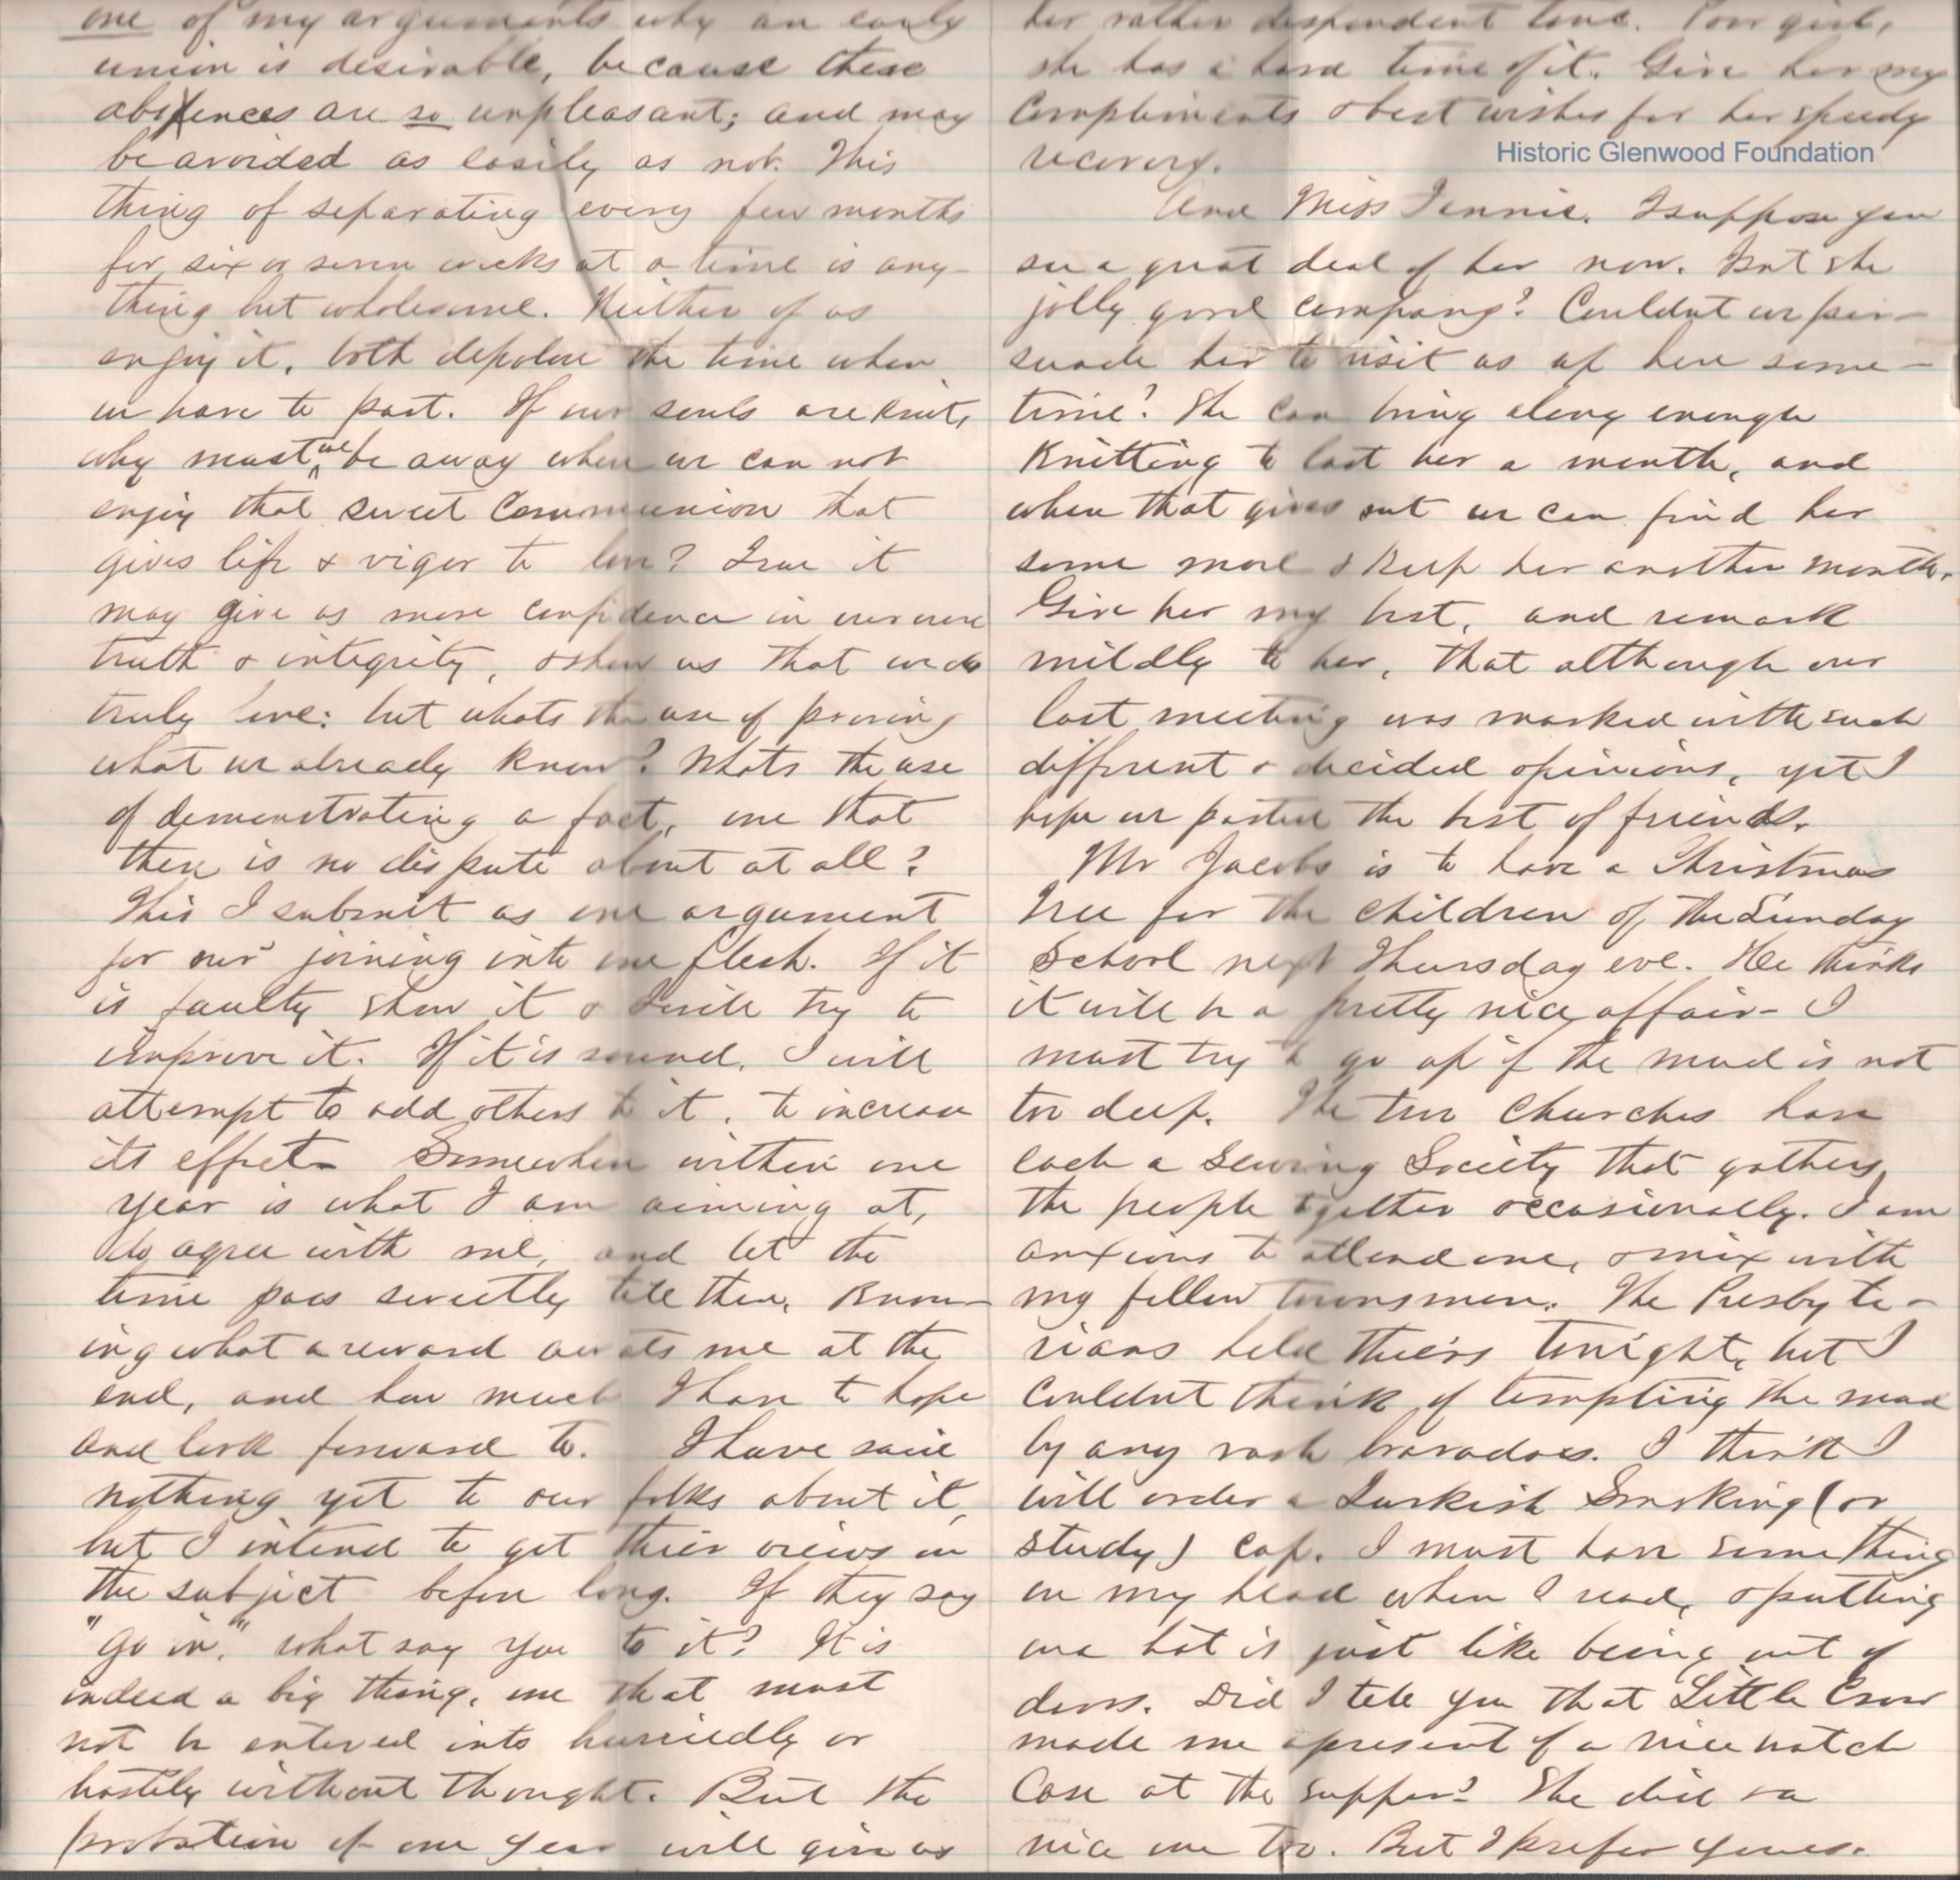 one of my arguments why an early
union is desirable, because these
absences are so unpleasant; and may
be avoided as easily as not. This
thing of separating every few months
for six or seven weeks at a time is any-
thing but wholesome. Neither of us
enjoy it, both deplore the time when
we have to part. If our souls are knit,
why must we be away when we can not
enjoy that sweet Communion that
gives life & vigor to love? True it
may give us more confidence in our own
truth & integrity, & show us that we do
truly love: but whats the use of proving
what we already know? Whats the use
of demonstrating a fact, one that
there is no dispute about at all?
This I submit as one argument
for our joining into one flesh. If it
is faulty show it & I will try to
improve it. If it is sound, I will
attempt to add others to it, to increase
its effect. Somewhere within one
year is what I am aiming at,
do agree with me, and let the
time pass sweetly till then, Know-
ing what a reward awaits me at the
end, and how much I have to hope
and look forward to. I have said
nothing yet to our folks about it,
but I intend to get their views on
the subject before long. If they say
"go in," what say you to it? It is
indeed a big thing, one that must
not be entered into hurriedly or
hastily without thought. But the
probation of one year will give us
her rather despondent tone. Poor girl,
she has a hard time of it. Give her my
Compliments & best wishes for her speedy
recovery.
Historic Glenwood Foundation
And Miss Jennie. I suppose you
see a great deal of her now. Isnt she
jolly good company? Couldnt we per-
suade her to visit us up here some-
time? She can bring along enough
Knitting to last her a month, and
when that gives out we can find her
some more & keep her another month.
Give her my best, and remark
mildly to her, that although our
last meeting was marked with such
different & decided opinions, yet I
hope we parted the best of friends.
Mr Jacobs is to have a Christmas
Tree for the children of the Sunday
School next Thursday eve. He thinks
it will be a pretty nice affair - I
must try to go up if the mud is not
too deep. The two Churches have
each a Sewing Society that gathers
the people together occasionally. I am
anxious to attend one, & mix with
my fellow townsmen. The Presbyte-
rians held theirs tonight, but I
couldnt think of tempting the mud
by any rash bravadoes. I think I
will order a Turkish Smoking (or
study) cap. I must have something
on my head when I read, & putting
on a hat is just like being out of
doors. Did I tell you that Little Crow
made me a present of a nice watch
Case at the supper? She did & a
nice one too. But I prefer yours.